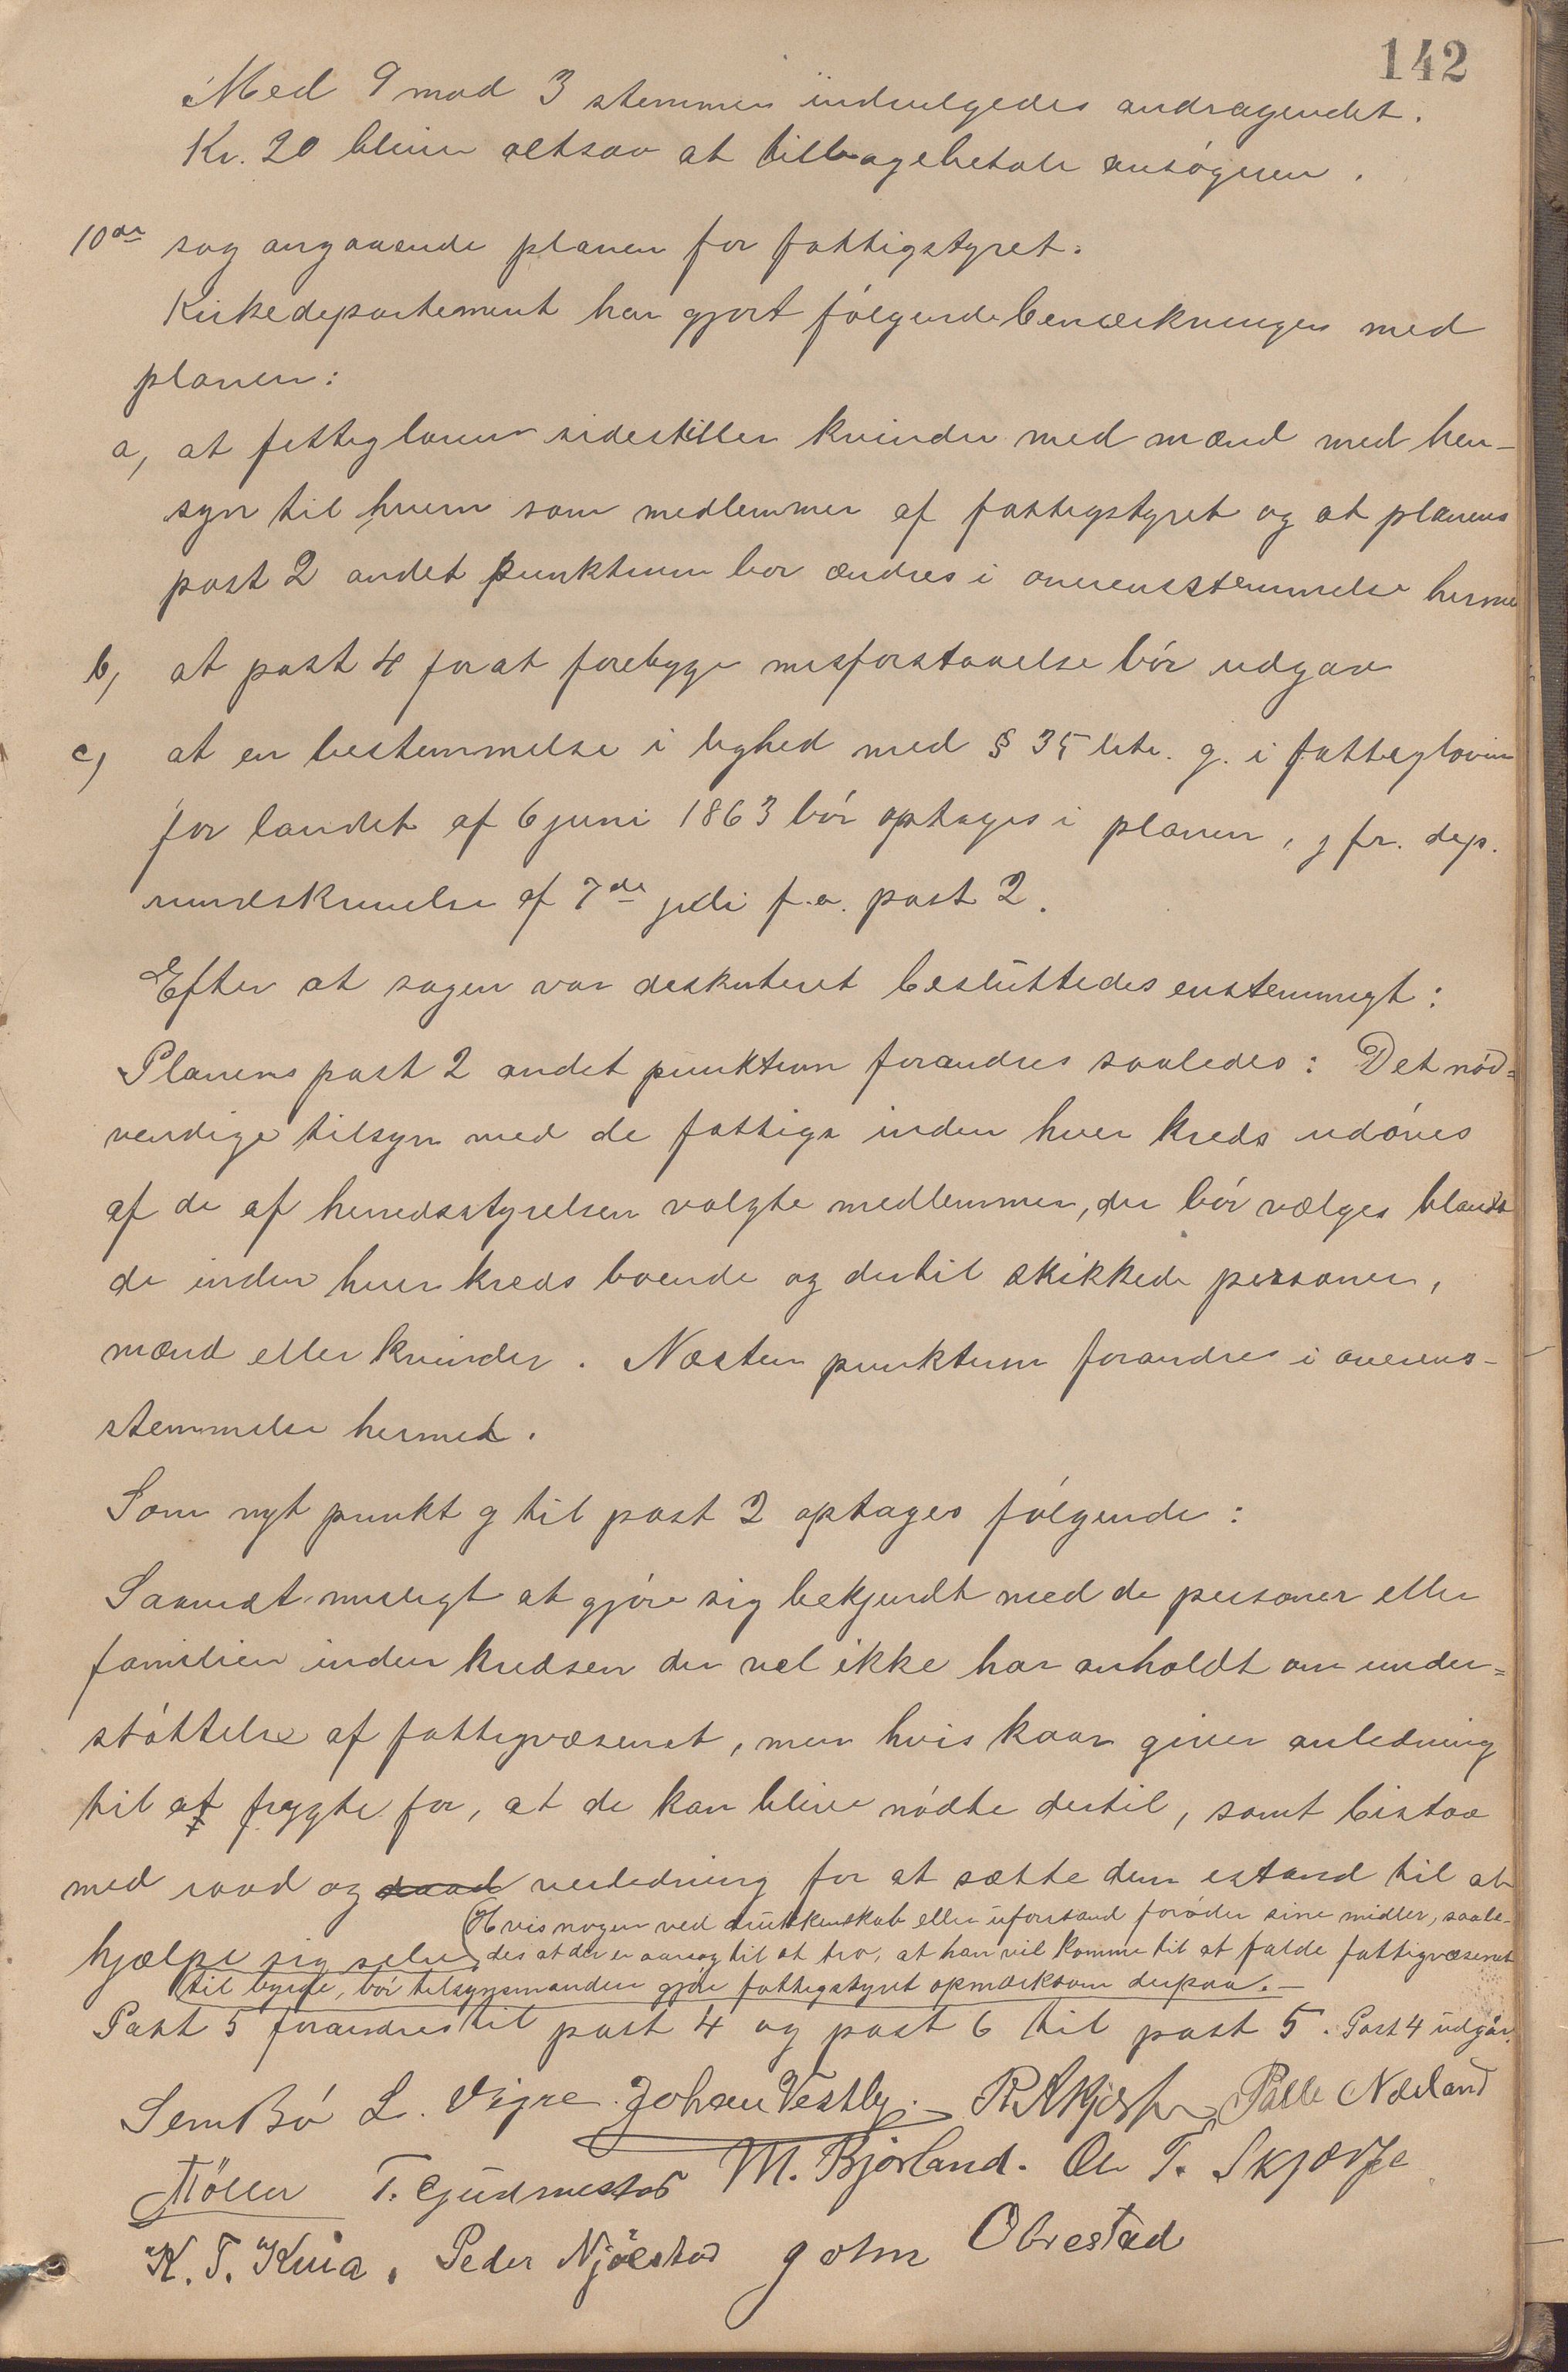 142
Med 9 mod 3 stemmer indvilgedes andragendet.
Kr. 20 bliver altsaa at tilbagebetale ansøgeren.
10de sag angaaende planen for fattigstyret.
Kirkedepartement har gjort følgende bemærkninger med
planen:
a, at fattigloven sidestiller kvinder med mænd med hen-
syn til hvem som medlemmer af fattigstyret og at planens
post 2 andet punktum bør ændres i overensstemmelse herme
b, at post 4 for at forebyge misforstaaelse bør udgaa
c, at en bestemmelse i lighed med § 35 litr. g. i fattigloven
for landet af 6 juni 1863 bør optages i planen, jfr. dep.
rundskrivelse af 7de juli f.a. post 2.
Efter at sagen var diskuteret besluttedes enstemmigt:
Planens post 2 andet punktum forandres saaledes: Det nød=
vendige tilsyn med de fattige inden hver kreds udøves
af de af herredsstyrelsen valgte medlemmer, der bør vælges blandt
de inden hver kreds boende og dertil skikkede personer,
mænd eller kvinder. Næsten punktum forandres i overens-
stemmelse hermed.
Som nyt punkt g til post 2 optages følgende:
Saavidt muligt at gjøre sig bekjendt med de personer eller
familien inden kredsen der vel ikke har anholdt om under=
støttelse af fattigvæsenet, men hvis kaar giver anledning
til at frygte for, at de kan blive nødte dertil, samt bistaa
med raad og daad veiledning for at sætte dem istand til at
hjælpe sig selv.
Hvis nogen ved drukkenskab eller uforstand forøder sine midler, saale-
des at der er aarsag til at tro, at han vil komme til at falde fattigvæsenet
til byrde, bør tilsynsmanden gjøre fattigstyret opmærksom derpaa.-
Post 5 forandres til post 4 og post 6 til post 5. Post 4 udgår.
Sem Bø L. Vigre. Johan Vestly. Palle Nærland
Møller T. Gudmestad M. Bjorland. Ole T. Skjærpe
K. T. Kvia. Peder Njølstad John Obrestad